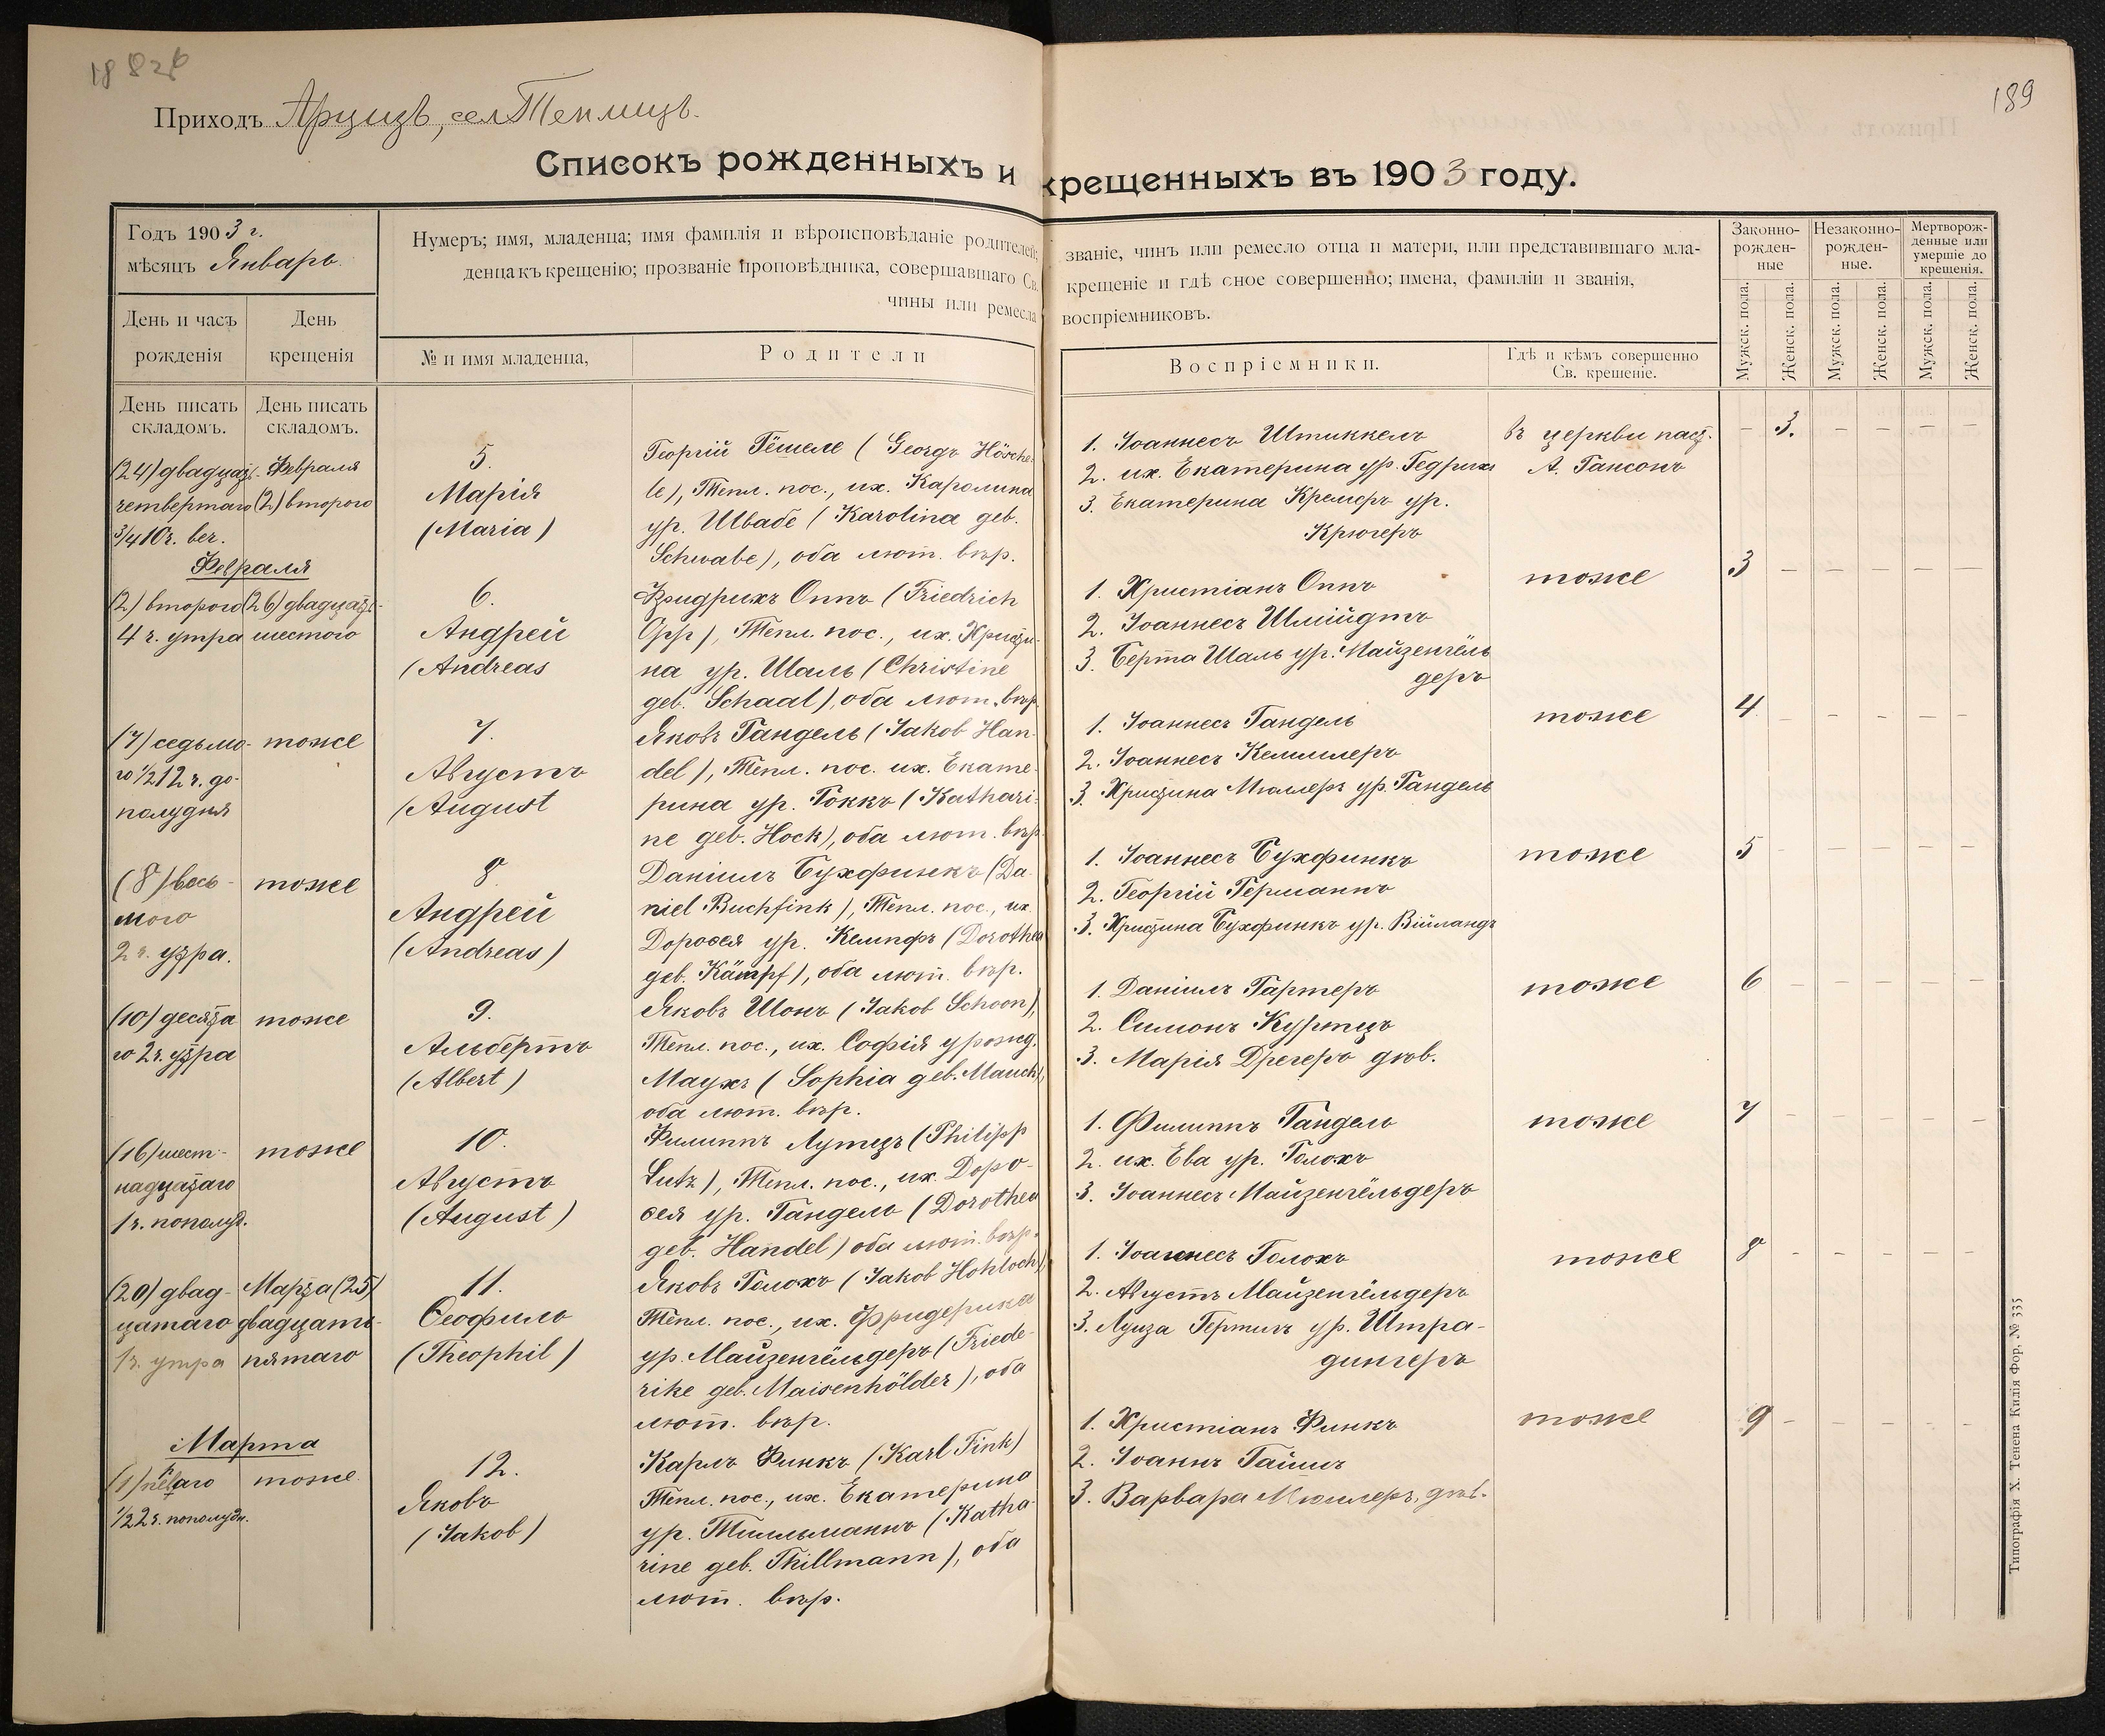 189
Приходъ Арцизъ, сел. Теплицъ.
Списокъ рожденныхъ и крещенныхъ въ 1903 году.
Годъ 1903 г.
мѣсяцъ Январь.
Нумеръ; имя, младенца; имя фамилія и вѣроисповѣданіе родителей; званіе, чинъ или ремесло отца и матери, или представившаго мла-
денца къ крещенію; прозваніе проповѣдника, совершавшаго Св. крещеніе и гдѣ оное совершенно; имена, фамиліи и званія,
чины или ремесла воспріемниковъ.
День и часъ
рожденія
День
крещенія
№ и имя младенца,
Родители
Воспріемники.
Гдѣ и кѣмъ совершенно
Св. крещеніе.
Законно-
рожден-
ные
Незаконно-
рожден-
ные.
Мертворож-
денные или
умершіе до
крещенія.
Мужск. пола.
Женск. пола.
Мужск. пола.
Женск. пола.
Мужск. пола.
Женск. пола.
День писать
складомъ.
День писать
складомъ.
(24) двадцать
четвертаго
3/4 10 ч. веч.
Февраля
(2) второго
5.
Марія
(Maria)
Георгій Гёшеле (Georg Hösche-
le), Тепл. пос., их. Каролина
ур. Швабе (Karolina geb.
Schwabe), оба лют. вѣр.
1. Іоаннесъ Штиккелъ
2. их. Екатерина ур. Гедрихъ
3. Екатерина Кремеръ ур.
Крюгеръ
въ церкви паст.
А. Гансонъ
– 3. – – – –
Февраля
(2) второго
4 ч. утра
(26) двадцать-
шестого
6.
Андрей
(Andreas
Фридрихъ Оппъ (Friedrich
Opp), Тепл. пос., их. Христи-
на ур. Шаль (Christine
geb. Schaal), оба лют. вѣр.
1. Христіанъ Оппъ
2. Іоаннесъ Шмійдтъ
3. Берта Шаль ур. Майзенгёль
деръ
тоже
3 – – – – –
(7) седьмо-
го 1/2 12 ч. до-
полудня
тоже
7.
Августъ
(August
Яковъ Гандель (Jakob Han-
del), Тепл. пос. их. Екате-
рина ур. Гоккъ (Kathari-
ne geb. Hock), оба лют. вѣр.
1. Іоаннесъ Гандель
2. Іоаннесъ Кеммлеръ
3. Христина Мюллеръ ур. Гандель
тоже
4 – – – – –
(8) вось-
мого
2 ч. утра.
тоже
8
Андрей
(Andreas)
Даніилъ Бухфинкъ (Da-
niel Buchfink), Тепл. пос., их.
Дороѳея ур. Кемпфъ (Dorothea
geb. Kämpf), оба лют. вѣр.
1. Іоаннесъ Бухфинкъ
2. Георгій Германнъ
3. Христина Бухфинкъ ур. Війландъ
тоже
5 – – – – –
(10) десята
го 2 ч. утра
тоже
9.
Альбертъ
(Albert)
Яковъ Шонъ (Jakob Schoon),
Тепл. пос., их. Софія урожд.
Маухъ (Sophia geb. Mauch),
оба лют. вѣр.
1. Даніилъ Гартеръ
2. Симонъ Куртцъ
3. Марія Дрегеръ дѣв.
тоже
6 – – – – –
(16) шест-
надцатаго
1 ч. пополуд.
тоже
10.
Августъ
(August)
Филиппъ Лутцъ (Philipp
Lutz), Тепл. пос., их. Доро-
ѳея ур. Гандель (Dorothea
geb. Handel) оба лют. вѣр.
1. Филиппъ Гандель
2. их. Ева ур. Голохъ
3. Іоаннесъ Майзенгёльдеръ
тоже
7 – – – – –
(20) двад-
цатаго
1 ч. утра
Марта (25)
двадцать-
пятаго
11.
Ѳеофилъ
(Theophil)
Яковъ Голохъ (Jakob Hohloch),
Тепл. пос., их. Фридерика
ур. Майзенгёльдеръ (Friede-
rike geb. Maisenhölder), оба
лют. вѣр.
1. Іоаннесъ Голохъ
2. Августъ Майзенгёльдеръ
3. Луиза Гертигъ ур. Штра-
дингеръ
тоже
8 – – – – –
Марта
(1) перваго
1/2 2 ч. пополудн.
тоже
12.
Яковъ
(Jakob)
Карлъ Финкъ (Karl Fink)
Тепл. пос., их. Екатерина
ур. Тилльманнъ (Katha-
rine geb. Thillmann), оба
лют. вѣр.
1. Христіанъ Финкъ
2. Іоаннъ Гайшъ
3. Варвара Мюллеръ, дѣв.
тоже
9 – – – – –
Типографія Х. Тенена Килія Фор. № 335